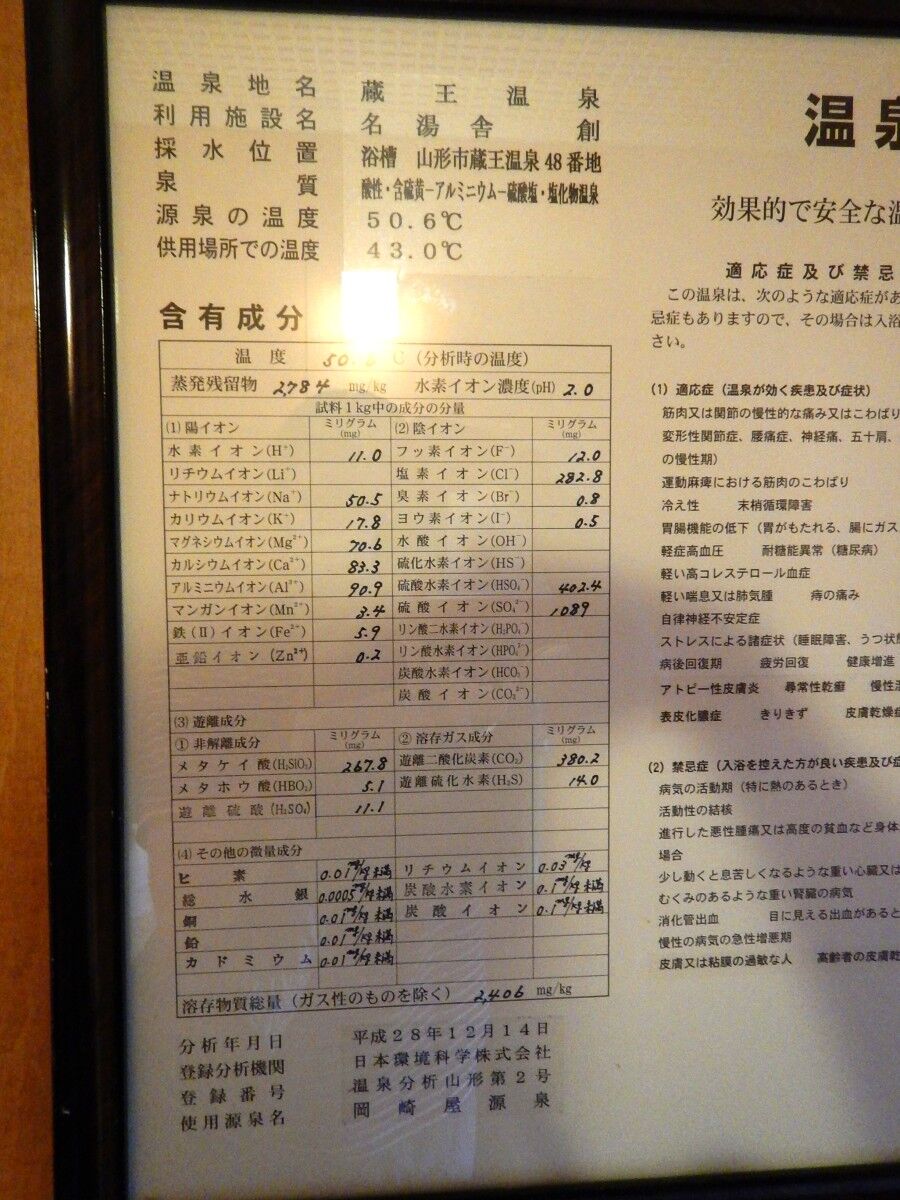 温泉地名 蔵王温泉
利用施設名 名湯舎 創
採水位置 浴槽 山形市蔵王温泉48番地
泉質 酸性・含硫黄－アルミニウム－硫酸塩・塩化物温泉
源泉の温度 50.6℃
供用場所での温度 43.0℃
含有成分
温度 50. ℃ (分析時の温度)
蒸発残留物 2,784 mg/kg 水素イオン濃度(pH) 2.0
試料1kg中の成分の分量
(1) 陽イオン ミリグラム(mg) (2) 陰イオン ミリグラム(mg)
水素イオン(H⁺) 11.0 フッ素イオン(F⁻) 12.0
リチウムイオン(Li⁺) 塩素イオン(Cl⁻) 282.8
ナトリウムイオン(Na⁺) 50.5 臭素イオン(Br⁻) 0.8
カリウムイオン(K⁺) 17.8 ヨウ素イオン(I⁻) 0.5
マグネシウムイオン(Mg²⁺) 70.6 水酸イオン(OH⁻)
カルシウムイオン(Ca²⁺) 83.3 硫化水素イオン(HS⁻)
アルミニウムイオン(Al³⁺) 90.9 硫酸水素イオン(HSO₄⁻) 402.4
マンガンイオン(Mn²⁺) 3.4 硫酸イオン(SO₄²⁻) 1089
鉄(Ⅱ)イオン(Fe²⁺) 5.9 リン酸二水素イオン(H₂PO₄⁻)
亜鉛イオン(Zn²⁺) 0.2 リン酸水素イオン(HPO₄²⁻)
炭酸水素イオン(HCO₃⁻)
炭酸イオン(CO₃²⁻)
(3) 遊離成分
① 非解離成分 ミリグラム(mg) ② 溶存ガス成分 ミリグラム(mg)
メタケイ酸(H₂SiO₃) 267.8 遊離二酸化炭素(CO₂) 380.2
メタホウ酸(HBO₂) 5.1 遊離硫化水素(H₂S) 14.0
遊離硫酸(H₂SO₄) 11.1
(4) その他の微量成分
ヒ素 0.01mg/kg未満 リチウムイオン 0.03mg/kg
総水銀 0.0005mg/kg未満 炭酸水素イオン 0.1mg/kg未満
銅 0.01mg/kg未満 炭酸イオン 0.1mg/kg未満
鉛 0.01mg/kg未満
カドミウム 0.01mg/kg未満
溶存物質総量(ガス性のものを除く) 2,406 mg/kg
分析年月日 平成28年12月14日
登録分析機関 日本環境科学株式会社
登録番号 温泉分析山形第2号
使用源泉名 岡崎屋源泉
温泉
効果的で安全な温
適応症及び禁忌
この温泉は、次のような適応症があ
忌症もありますので、その場合は入浴
さい。
(1) 適応症（温泉が効く疾患及び症状）
筋肉又は関節の慢性的な痛み又はこわばり
変形性関節症、腰痛症、神経痛、五十肩、
の慢性期）
運動麻痺における筋肉のこわばり
冷え性 末梢循環障害
胃腸機能の低下（胃がもたれる、腸にガス
軽症高血圧 耐糖能異常（糖尿病）
軽い高コレステロール血症
軽い喘息又は肺気腫 痔の痛み
自律神経不安定症
ストレスによる諸症状（睡眠障害、うつ状態
病後回復期 疲労回復 健康増進
アトピー性皮膚炎 尋常性乾癬 慢性湿
表皮化膿症 きりきず 皮膚乾燥症
(2) 禁忌症（入浴を控えた方が良い疾患及び症
病気の活動期（特に熱のあるとき）
活動性の結核
進行した悪性腫瘍又は高度の貧血など身体
場合
少し動くと息苦しくなるような重い心臓又は
むくみのあるような重い腎臓の病気
消化管出血 目に見える出血があると
慢性の病気の急性増悪期
皮膚又は粘膜の過敏な人 高齢者の皮膚乾